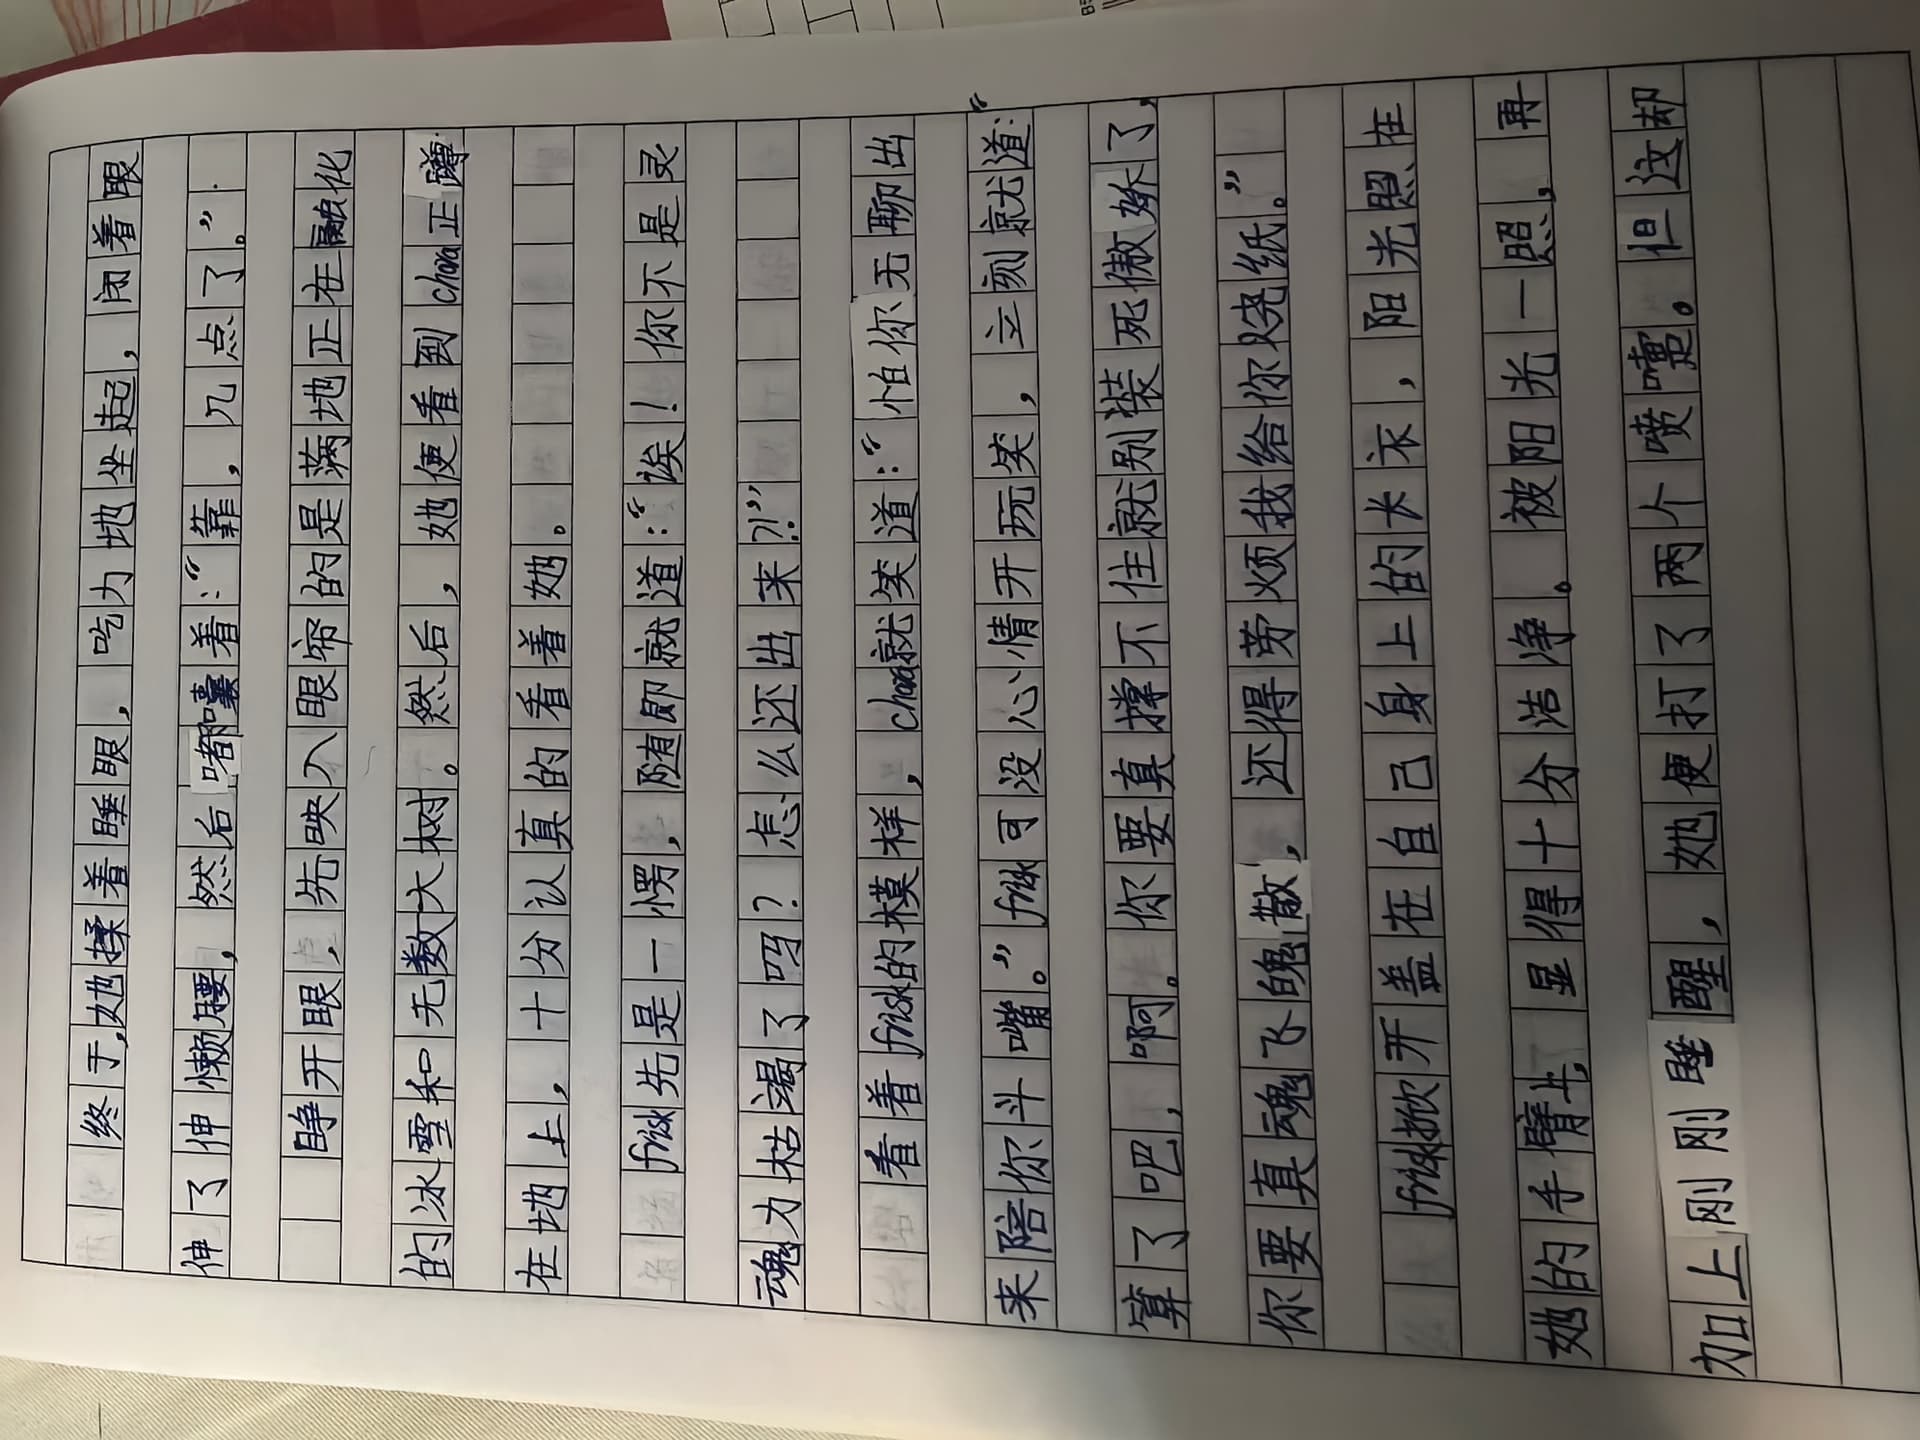 终于,她揉着睡眼,吃力地坐起,闭着眼
伸了伸懒腰,然后嘟囔着:“靠,几点了。”
睁开眼,先映入眼帘的是满地正在融化
的冰雪和无数大树。然后,她便看到chara正蹲
在地上,十分认真的看着她。
frisk先是一愣,随即就道:“诶!你不是灵
魂力枯竭了吗?怎么还出来?!”
看着frisk的模样,chara就笑道:“怕你无聊出
来陪你斗嘴。”frisk可没心情开玩笑,立刻就道:“
算了吧,啊。你要真撑不住就别装死傲娇了,
你要真魂飞魄散,还得劳烦我给你烧纸。”
frisk掀开盖在自己身上的长衣,阳光照在
她的手臂上,显得十分洁净。被阳光一照,再
加上刚刚睡醒,她便打了两个喷嚏。但这却